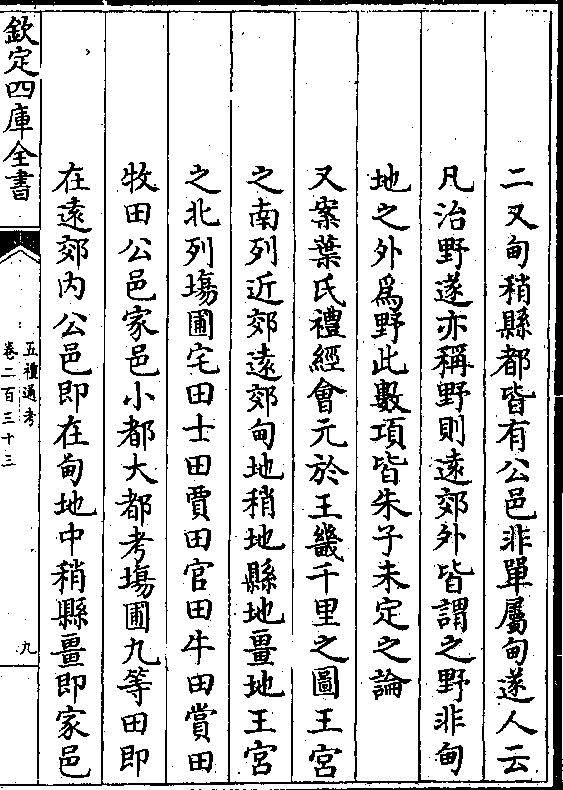 二又甸稍縣都皆有公邑非單屬甸遂人云
凡治野遂亦稱野則遠郊外皆謂之野非甸
地之外為野此數項皆朱子未定之論
又案葉氏禮經會元於王畿千里之圖王宮
之南列近郊遠郊甸地稍地縣地畺地王宮
之北列塲圃宅田士田賈田官田牛田賞田
牧田公邑家邑小都大都考塲圃九等田即
在遠郊内公邑即在甸地中稍縣畺即家邑
欽定四庫全書
五禮通考
卷二百三十三
九